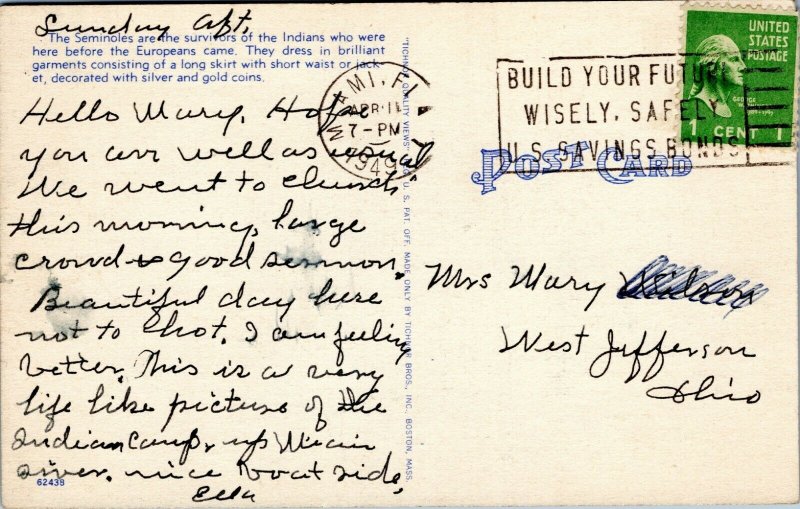 Sunday Aft.
The Seminoles are the survivors of the Indians who were
here before the Europeans came. They dress in brilliant
garments consisting of a long skirt with short waist or jack-
et, decorated with silver and gold coins.
Hello Mary, Hope
you are well as usual
We went to church
this morning, large
crowd & good sermon.
Beautiful day here
not to hot. I am feeling
better. This is a very
life like picture of the
Indian Camp, up Miami
river. nice boat ride,
Ella
62438
"TICHNOR QUALITY VIEWS," REG. U. S. PAT. OFF. MADE ONLY BY TICHNOR BROS., INC., BOSTON, MASS.
MIAMI, FLA
APR 11
7-PM
1949
BUILD YOUR FUTURE
WISELY, SAFELY
U.S. SAVINGS BONDS
UNITED
STATES
POSTAGE
GEORGE
1 CENT 1
POST CARD
Mrs Mary
West Jefferson
Ohio